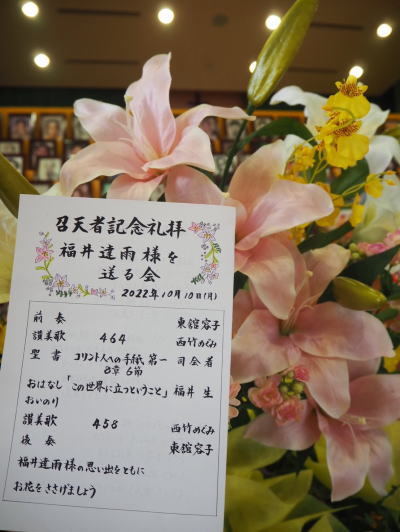 召天者記念礼拝
福井達雨様を
送る会
2022年10月10日(月)
前奏 東舘容子
讃美歌 464 西竹めぐみ
聖書 コリント人への手紙 第一 司会者
8章 6節
おはなし「この世界に立つということ」福井 生
おいのり
讃美歌 458 西竹めぐみ
後奏 東舘容子
福井達雨様の思い出をともに
お花をささげましょう